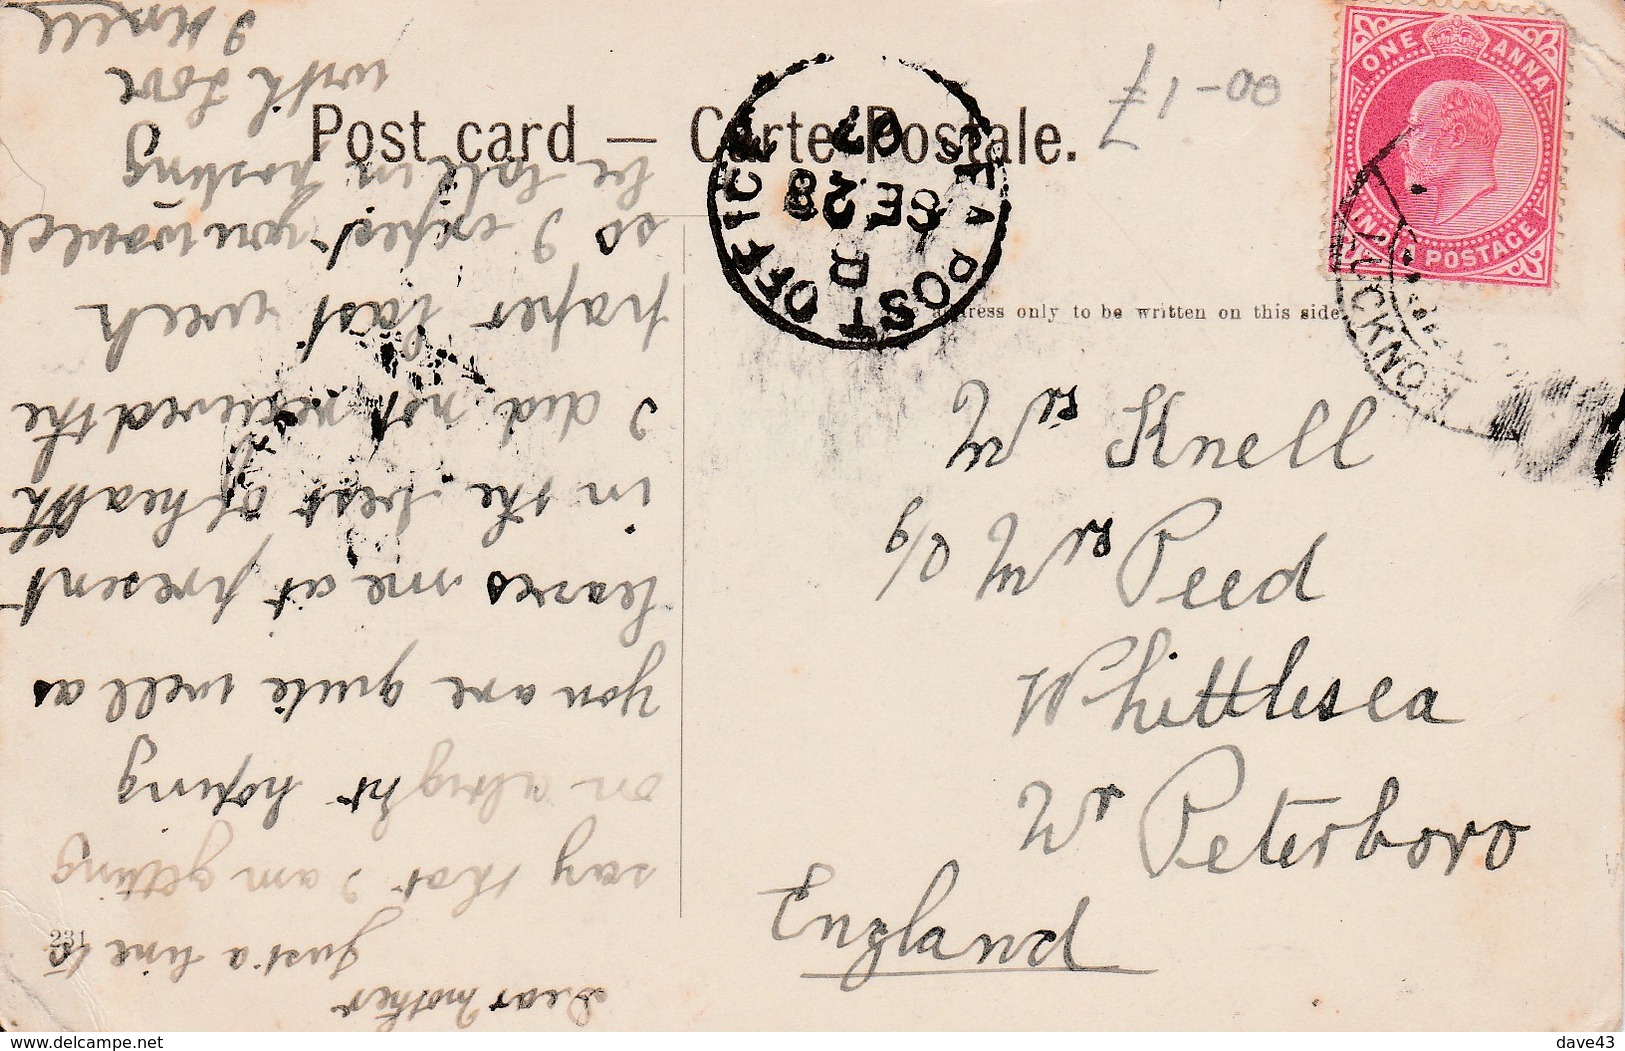 Post card — Carte Postale.
00-17
ONE ANNA
INDIA POSTAGE
LUCKNOW
SEA POST OFFICE
B
SE 28
07
address only to be written on this side.
Mrs Knell
C/o Mrs Peed
Whittlesea
Nr Peterboro
England
231
Dear Mother
Just a line to
say that I am getting
on alright hoping
you are quite well as
leaves me at present
in the best of health
I did not received the
paper last week
so I expect you would
be late in posting
with Love
J Knell
delcampe.net
dave43